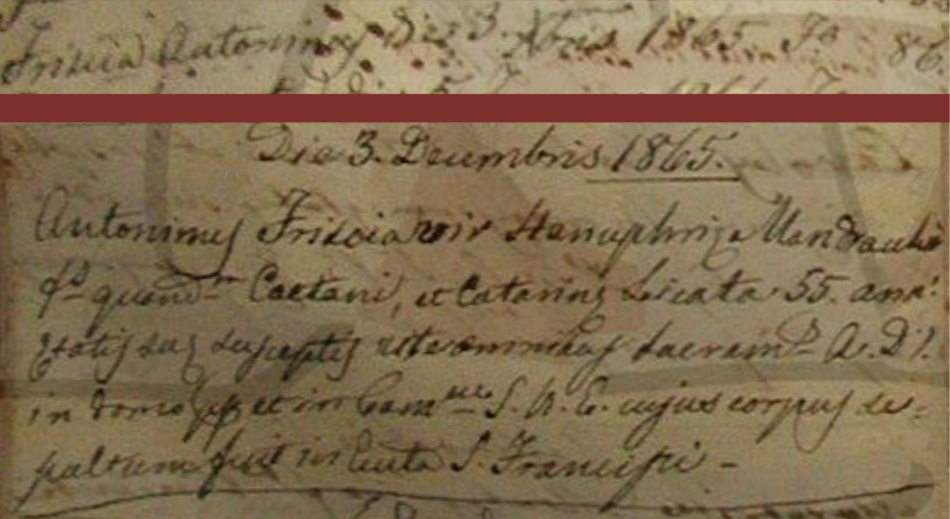 Friscia Antoninus Die 3. Xbris 1865. Fo 86.
Die 3. Decembris 1865.
Antoninus Friscia vir Honuphriæ Mandra
fs quond Caetani, et Catarinæ Licata 55. ann:
ætatis suæ susceptis rite omnibus sacram A. D.
in domo et in Com S. M. E. cujus corpus se=
pultum fuit in Eccta S. Francisci -